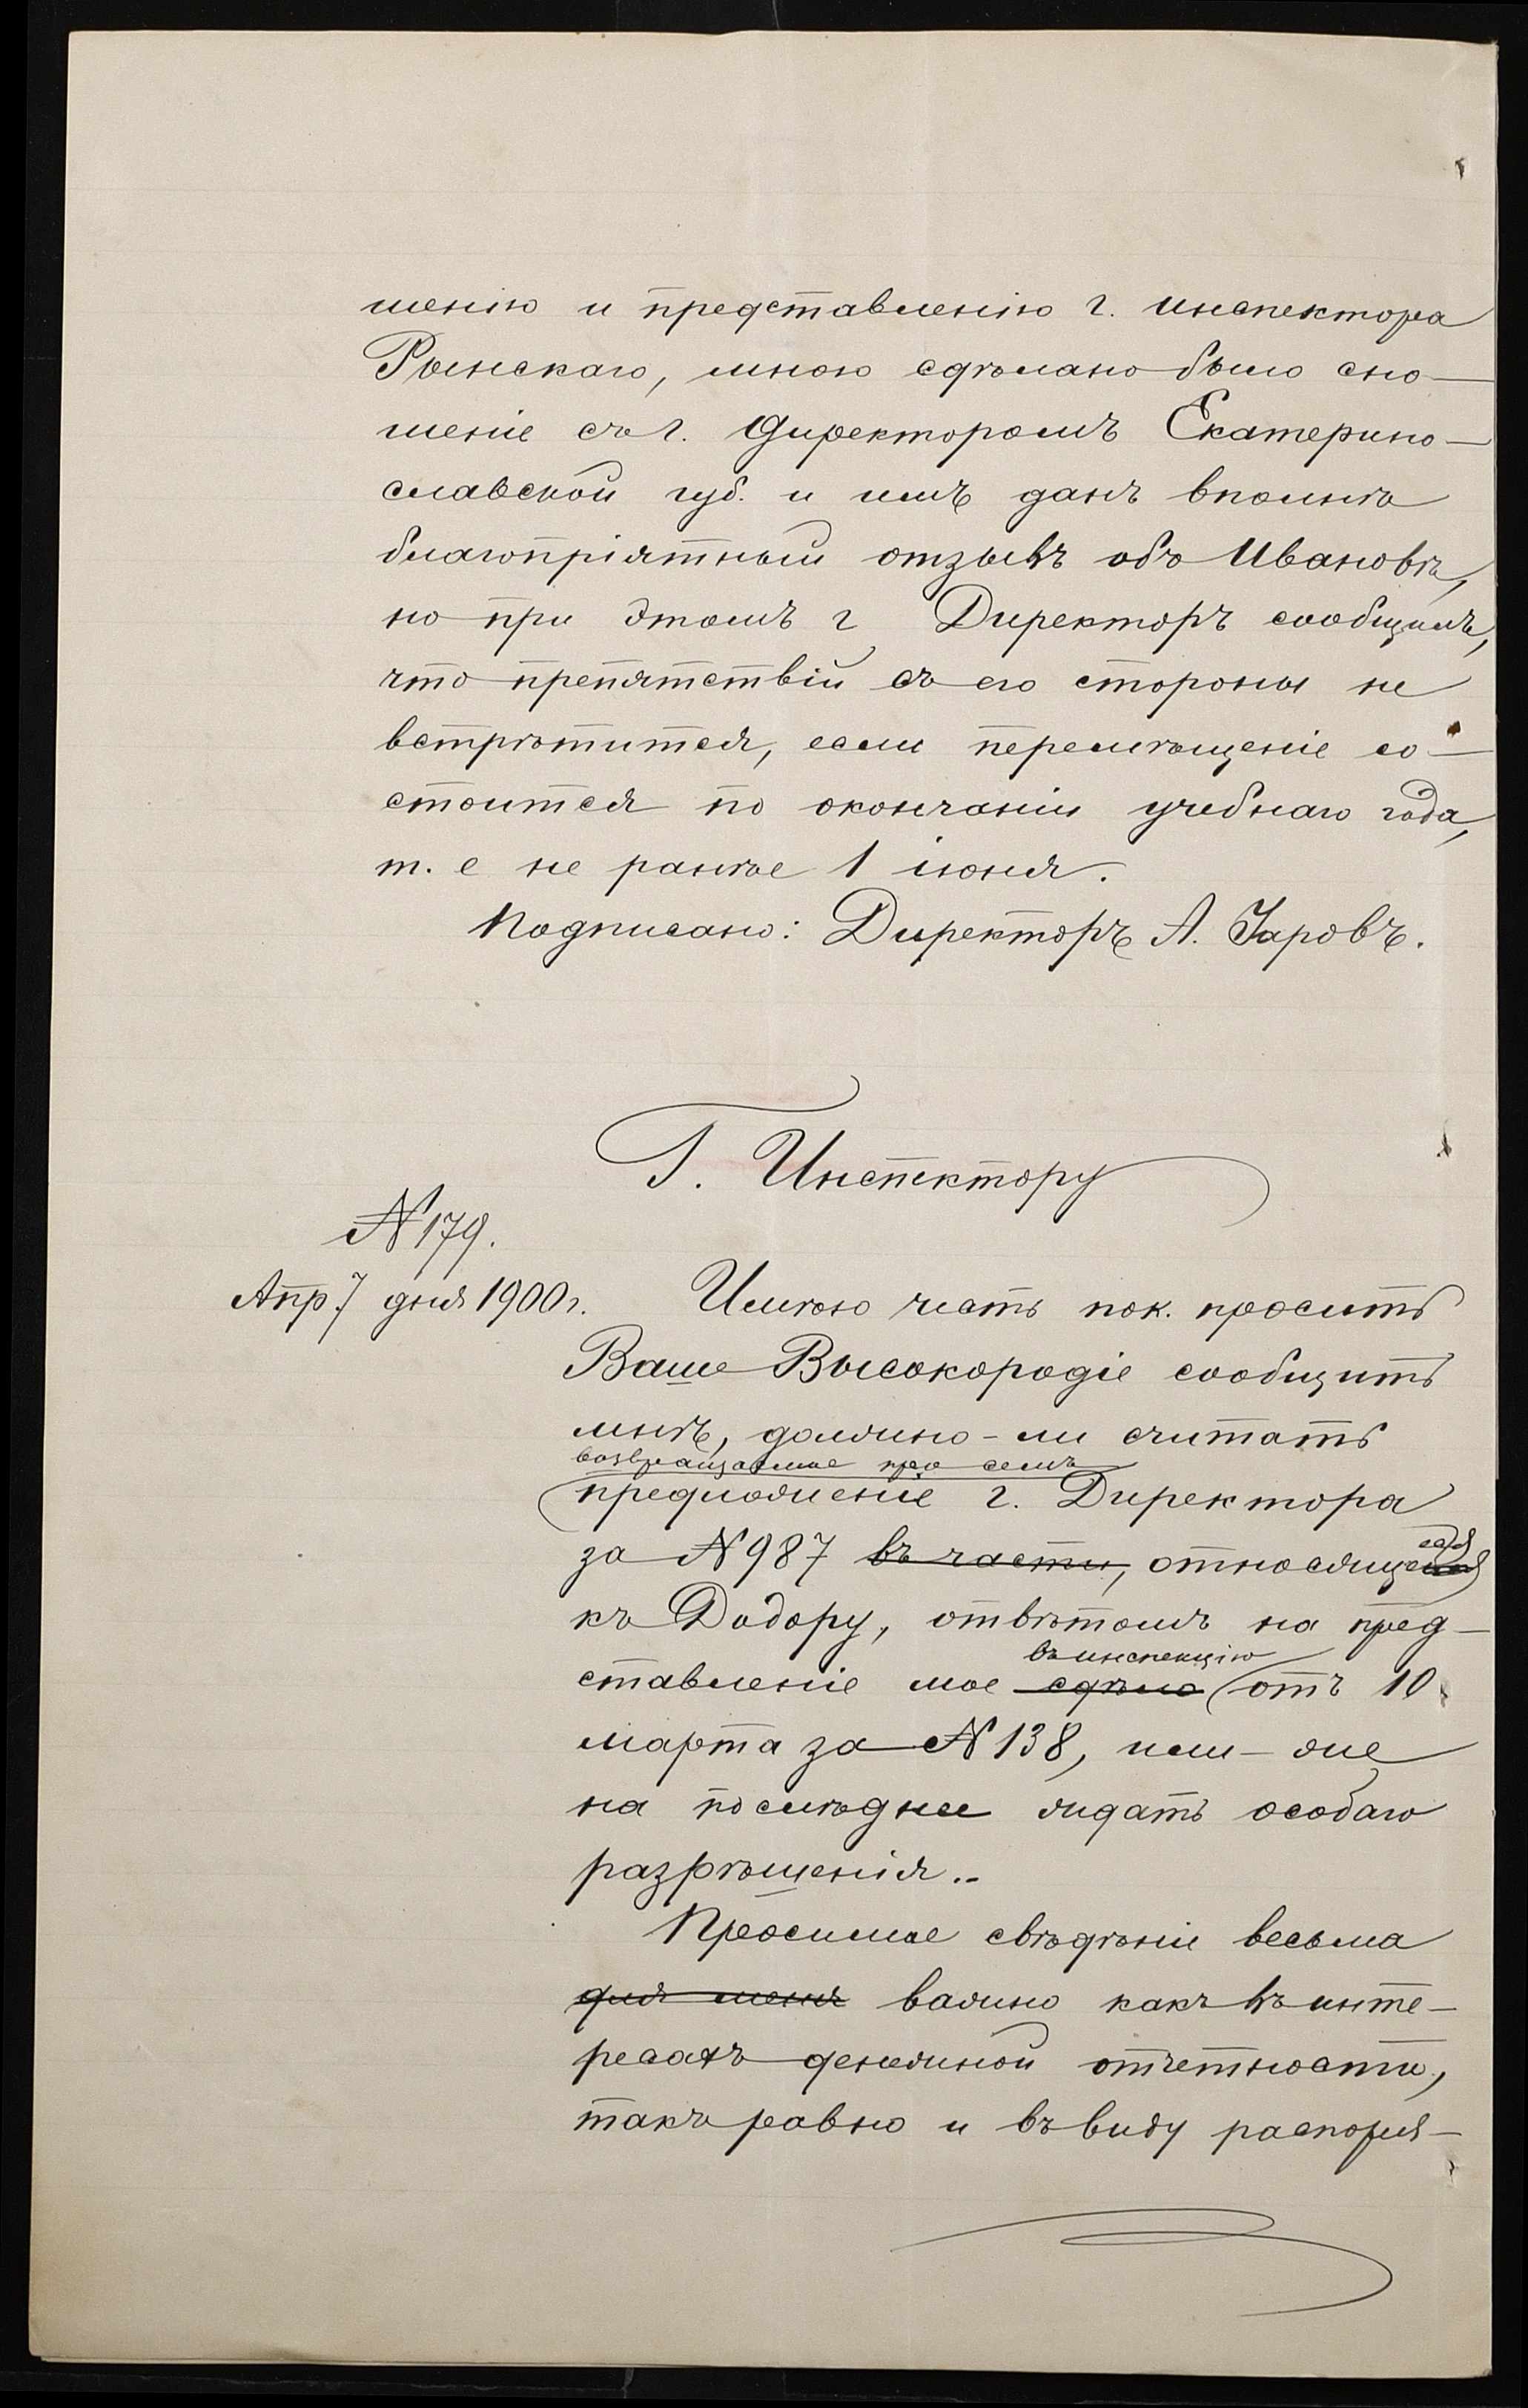 шенію и представленію г. инспектора
Рынскаго, мною сдѣлано было сно-
шеніе съ г. Директоромъ Екатерино-
славской губ. и имъ данъ вполнѣ
благопріятный отзывъ объ Ивановѣ,
но при этомъ г Директоръ сообщилъ,
что препятствій съ его стороны не
встрѣтится, если перемѣщеніе со-
стоится по окончаніи учебнаго года,
т. е не ранѣе 1 іюня.
Подписано: Директоръ А. Жаровъ.
Г. Инспектору
№ 179.
Апр. 7 дня 1900 г.
Имѣю честь пок. просить
Ваше Высокородіе сообщить
мнѣ, должно-ли считать
возвращаемое при семъ
предложеніе г. Директора
за № 987 въ части, относящееся
къ Додору, отвѣтомъ на пред-
въ инспекцію
ставленіе мое сдѣло отъ 10
марта за № 138, или-же
на послѣднее ждать особаго
разрѣшенія.-
Просимое свѣдѣніе весьма
для меня важно какъ въ инте-
ресахъ денежной отчетности,
такъ равно и въ виду распоря-